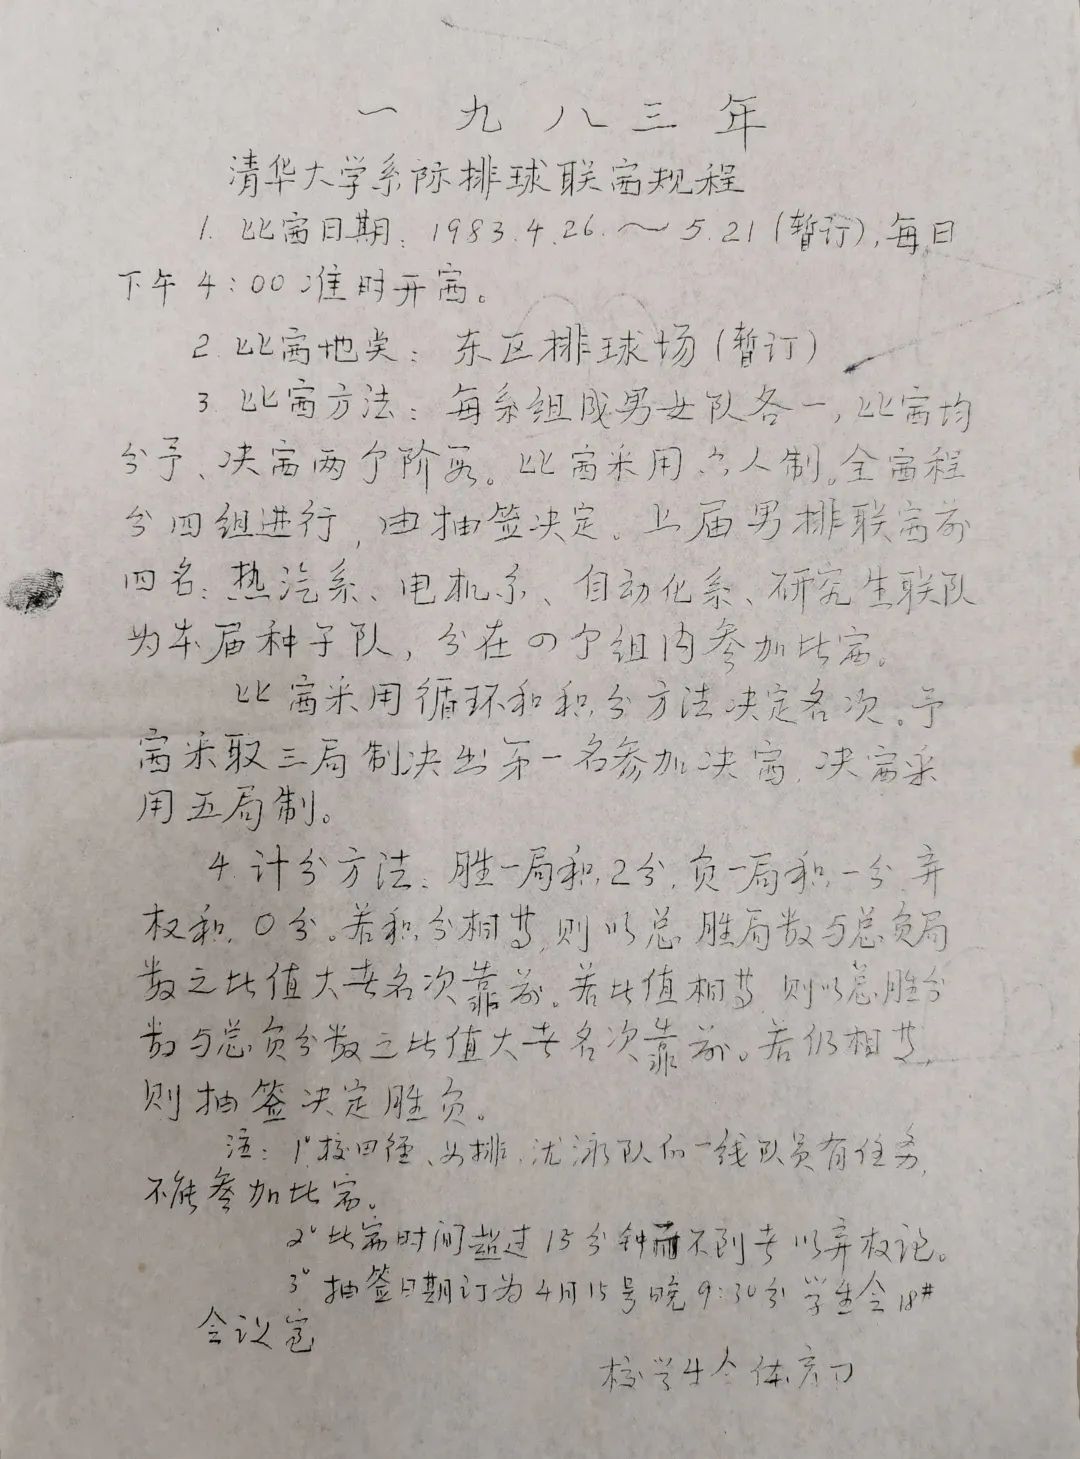 一九八三年
清华大学系际排球联赛规程
1. 比赛日期: 1983.4.26.～5.21(暂订),每日
下午4:00准时开赛。
2. 比赛地点: 东区排球场(暂订)
3. 比赛方法: 每系组成男女队各一,比赛均
分予、决赛两个阶段。比赛采用六人制。全赛程
分四组进行,由抽签决定。上届男排联赛前
四名:热汽系、电机系、自动化系、研究生联队
为本届种子队,分在四个组内参加比赛。
比赛采用循环和积分方法决定名次。予
赛采取三局制决出第一名参加决赛,决赛采
用五局制。
4. 计分方法: 胜一局积2分,负一局积一分,弃
权积0分。若积分相等,则以总胜局数与总负局
数之比值大者名次靠前。若比值相等,则以总胜分
数与总负分数之比值大者名次靠前。若仍相等,
则抽签决定胜负。
注: 1°校田径、女排、游泳队们一线队员有任务,
不能参加比赛。
2°比赛时间超过15分钟而不到者以弃权论。
3°抽签日期订为4月15号晚9:30分学生会18#
会议室
校学生会体育部